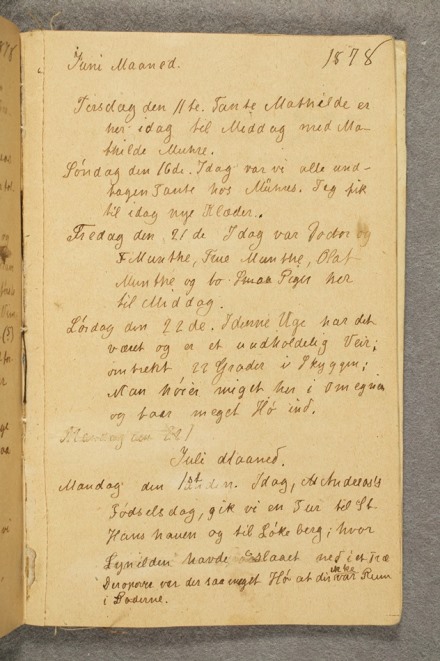 Juni Maaned. 1878
Tirsdag den 11te. Tante Mathilde er
her idag til Middag med Ma-
thilde Munre.
Søndag den 16de. Idag var vi alle und-
tagen Tante hos Munres. Jeg fik
til idag nye Klæder.
Fredag den 21de Idag var Doctor og
F Munthe, Fine Munthe, Olaf
Munthe og to Smaa Piger her
til Middag.
Lørdag den 22de. I denne Uge har det
været og er et uudholdelig Veir;
omtrekt 22 Grader i Skyggen;
Man høier meget her i Omegnen
og faar meget Hø ind.
Mandag den
Juli Maaned.
Mandag den 1st. Idag, At Andreas's
Fødselsdag, gik vi en Tur til St.
Hans haven og til Løkeberg; hvor
Lynilden havde slaaet ned i et Træ
Deroppe var der saa meget Hø at der ikke var Rum
i Laderne.